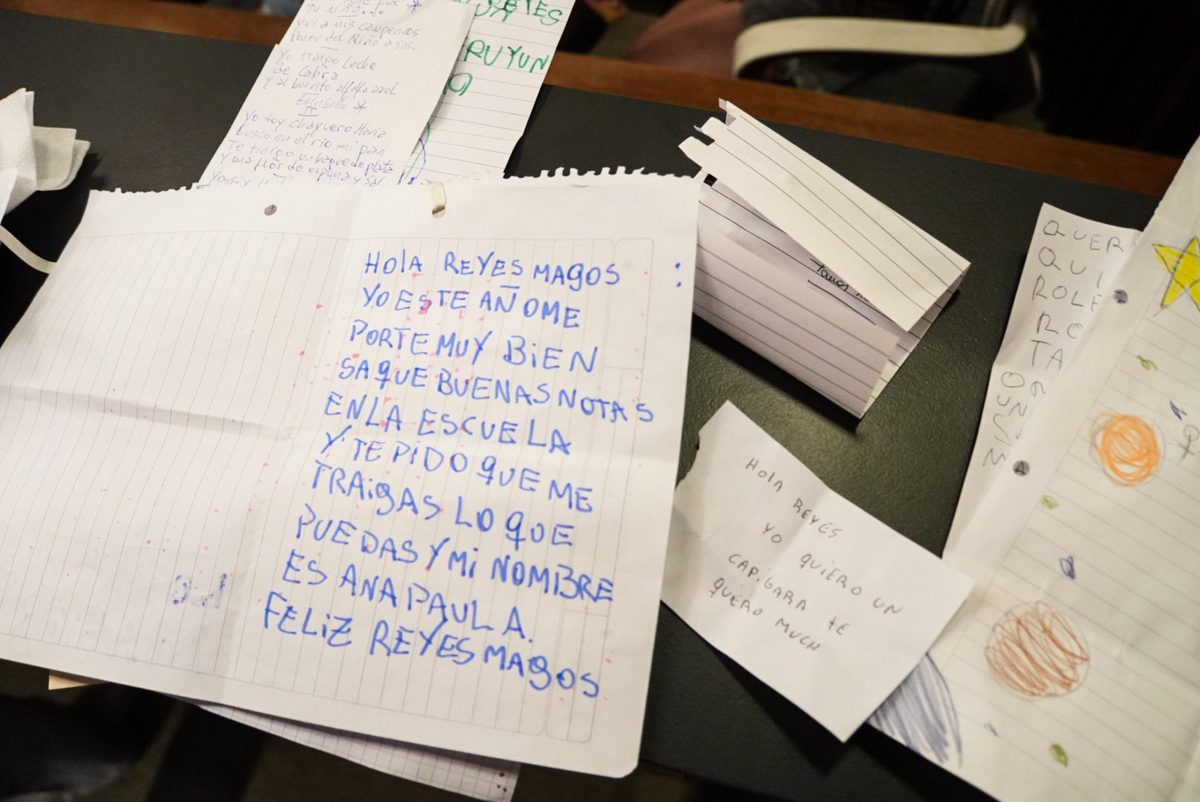 TU NIÑO...
Yo traigo leche
de cabra
Estribillo *
II
Yo soy chayuero María
busco en el río mi pan
Te traigo un bagre de plata
y una flor de espuma y sal
RUYUN
HOla REYES MAGOS :
YO ESTE AÑO ME
PORTE MUY BiEN
SAQUE BUENAS NOTAS
EN LA ESCUELA
Y TE PiDO QUE ME
TRAigAS LO QUE
PUEDAS Y Mi NOMBRE
ES ANA PAULA.
FELiZ REYES MAgOS
HOlA REYES
YO QUIERO UN
CAPiBARA tE
QUERO MUCH
QUER
QUI
ROLE
RO
TA